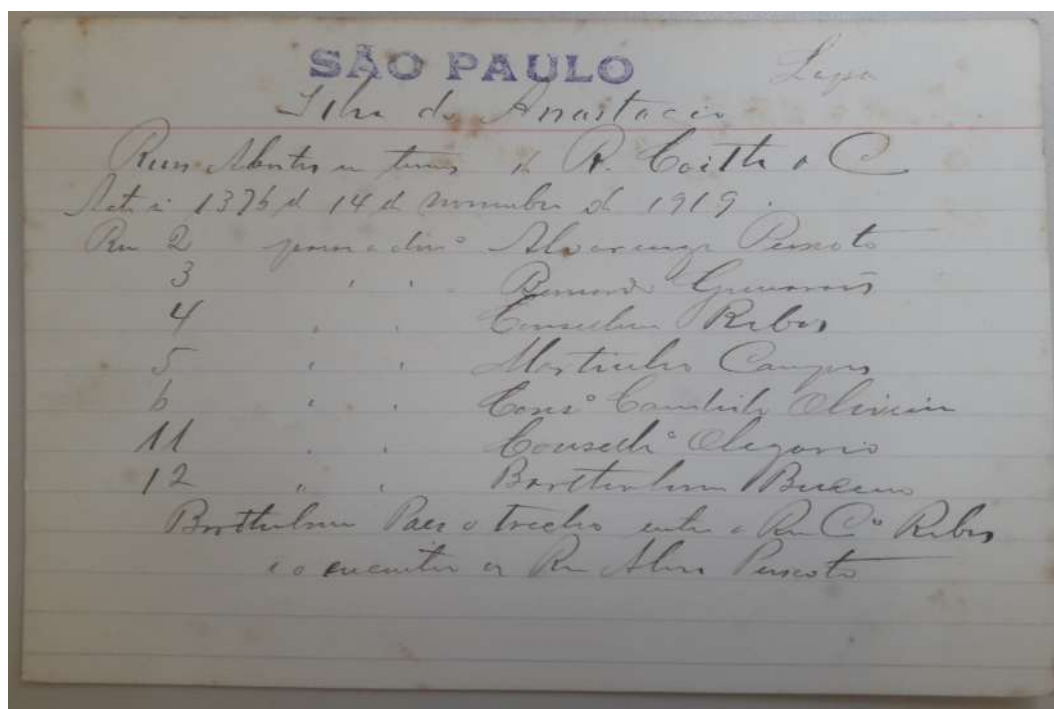 SÃO PAULO Lapa
Ilha do Anastacio
Ruas Abertas em terras de R. & C
Acto n 1376 de 14 de novembro de 1919.
Rua 2 passa a dinº Alvarenga Peixoto
3 " " Bernardo Guimarães
4 " " Conselheiro Ribas
5 " " Martinho Campos
6 " " Consº Candido Oliveira
11 " " Conselhº Olegario
12 " " Bartholomeu Bueno
Bartholomeu Paes o trecho entre a Rua Cº Ribas
e o encontro da Rua Alvar Peixoto